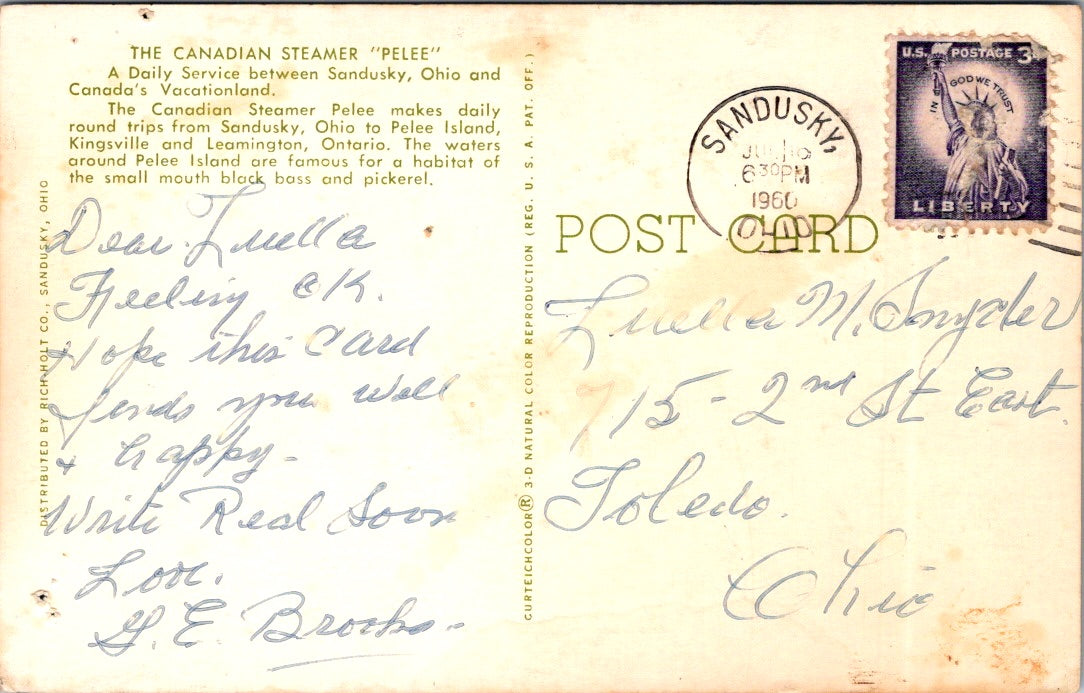 THE CANADIAN STEAMER "PELEE"
A Daily Service between Sandusky, Ohio and
Canada's Vacationland.
The Canadian Steamer Pelee makes daily
round trips from Sandusky, Ohio to Pelee Island,
Kingsville and Leamington, Ontario. The waters
around Pelee Island are famous for a habitat of
the small mouth black bass and pickerel.
DISTRIBUTED BY RICH HOLT CO., SANDUSKY, OHIO
Dear Luella
Feeling OK.
Hope this Card
finds you well
& happy-
Write Real Soon
Love.
G. E. Brooks-
CURTEICHCOLOR® 3-D NATURAL COLOR REPRODUCTION (REG. U. S. A. PAT. OFF.)
SANDUSKY,
630PM
1960
OHIO
U.S. POSTAGE 3
IN GOD WE TRUST
LIBERTY
POST CARD
Luella M. Snyder
715 - 2nd St East.
Toledo.
Ohio